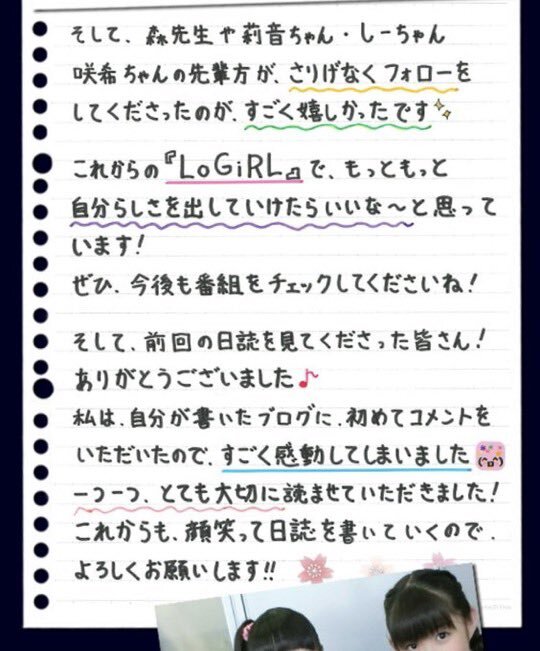 そして、森先生や莉音ちゃん・しーちゃん
咲希ちゃんの先輩方が、さりげなくフォローを
してくださったのが、すごく嬉しかったです
これからの『LoGiRL』で、もっともっと
自分らしさを出していけたらいいな〜と思って
います!
ぜひ、今後も番組をチェックしてくださいね!
そして、前回の日誌を見てくださった皆さん!
ありがとうございました♪
私は、自分が書いたブログに、初めてコメントを
いただいたので、すごく感動してしまいました
一つ一つ、とても大切に読ませていただきました!
これからも、顔笑って日誌を書いていくので、
よろしくお願いします!!